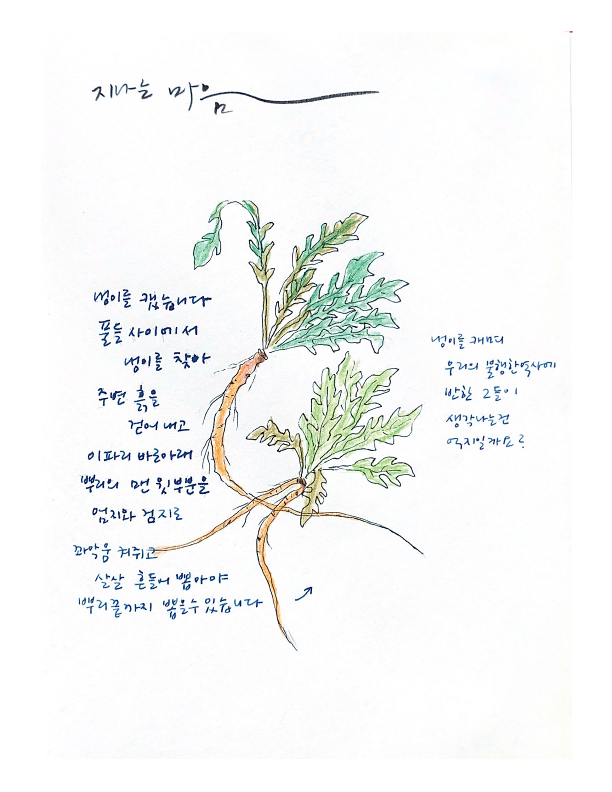 지나는 마음
냉이를 캤습니다
풀들 사이에서
냉이를 찾아
주변 흙을
걷어내고
이파리 바로아래
뿌리의 맨 윗부분을
엄지와 검지로
꽈악움켜쥐고
살살 흔들어 뽑아야
뿌리끝까지 뽑을수있습니다
냉이를 캐며
우리의 불행한역사에
반한 그들이
생각나는건
억지일까요?